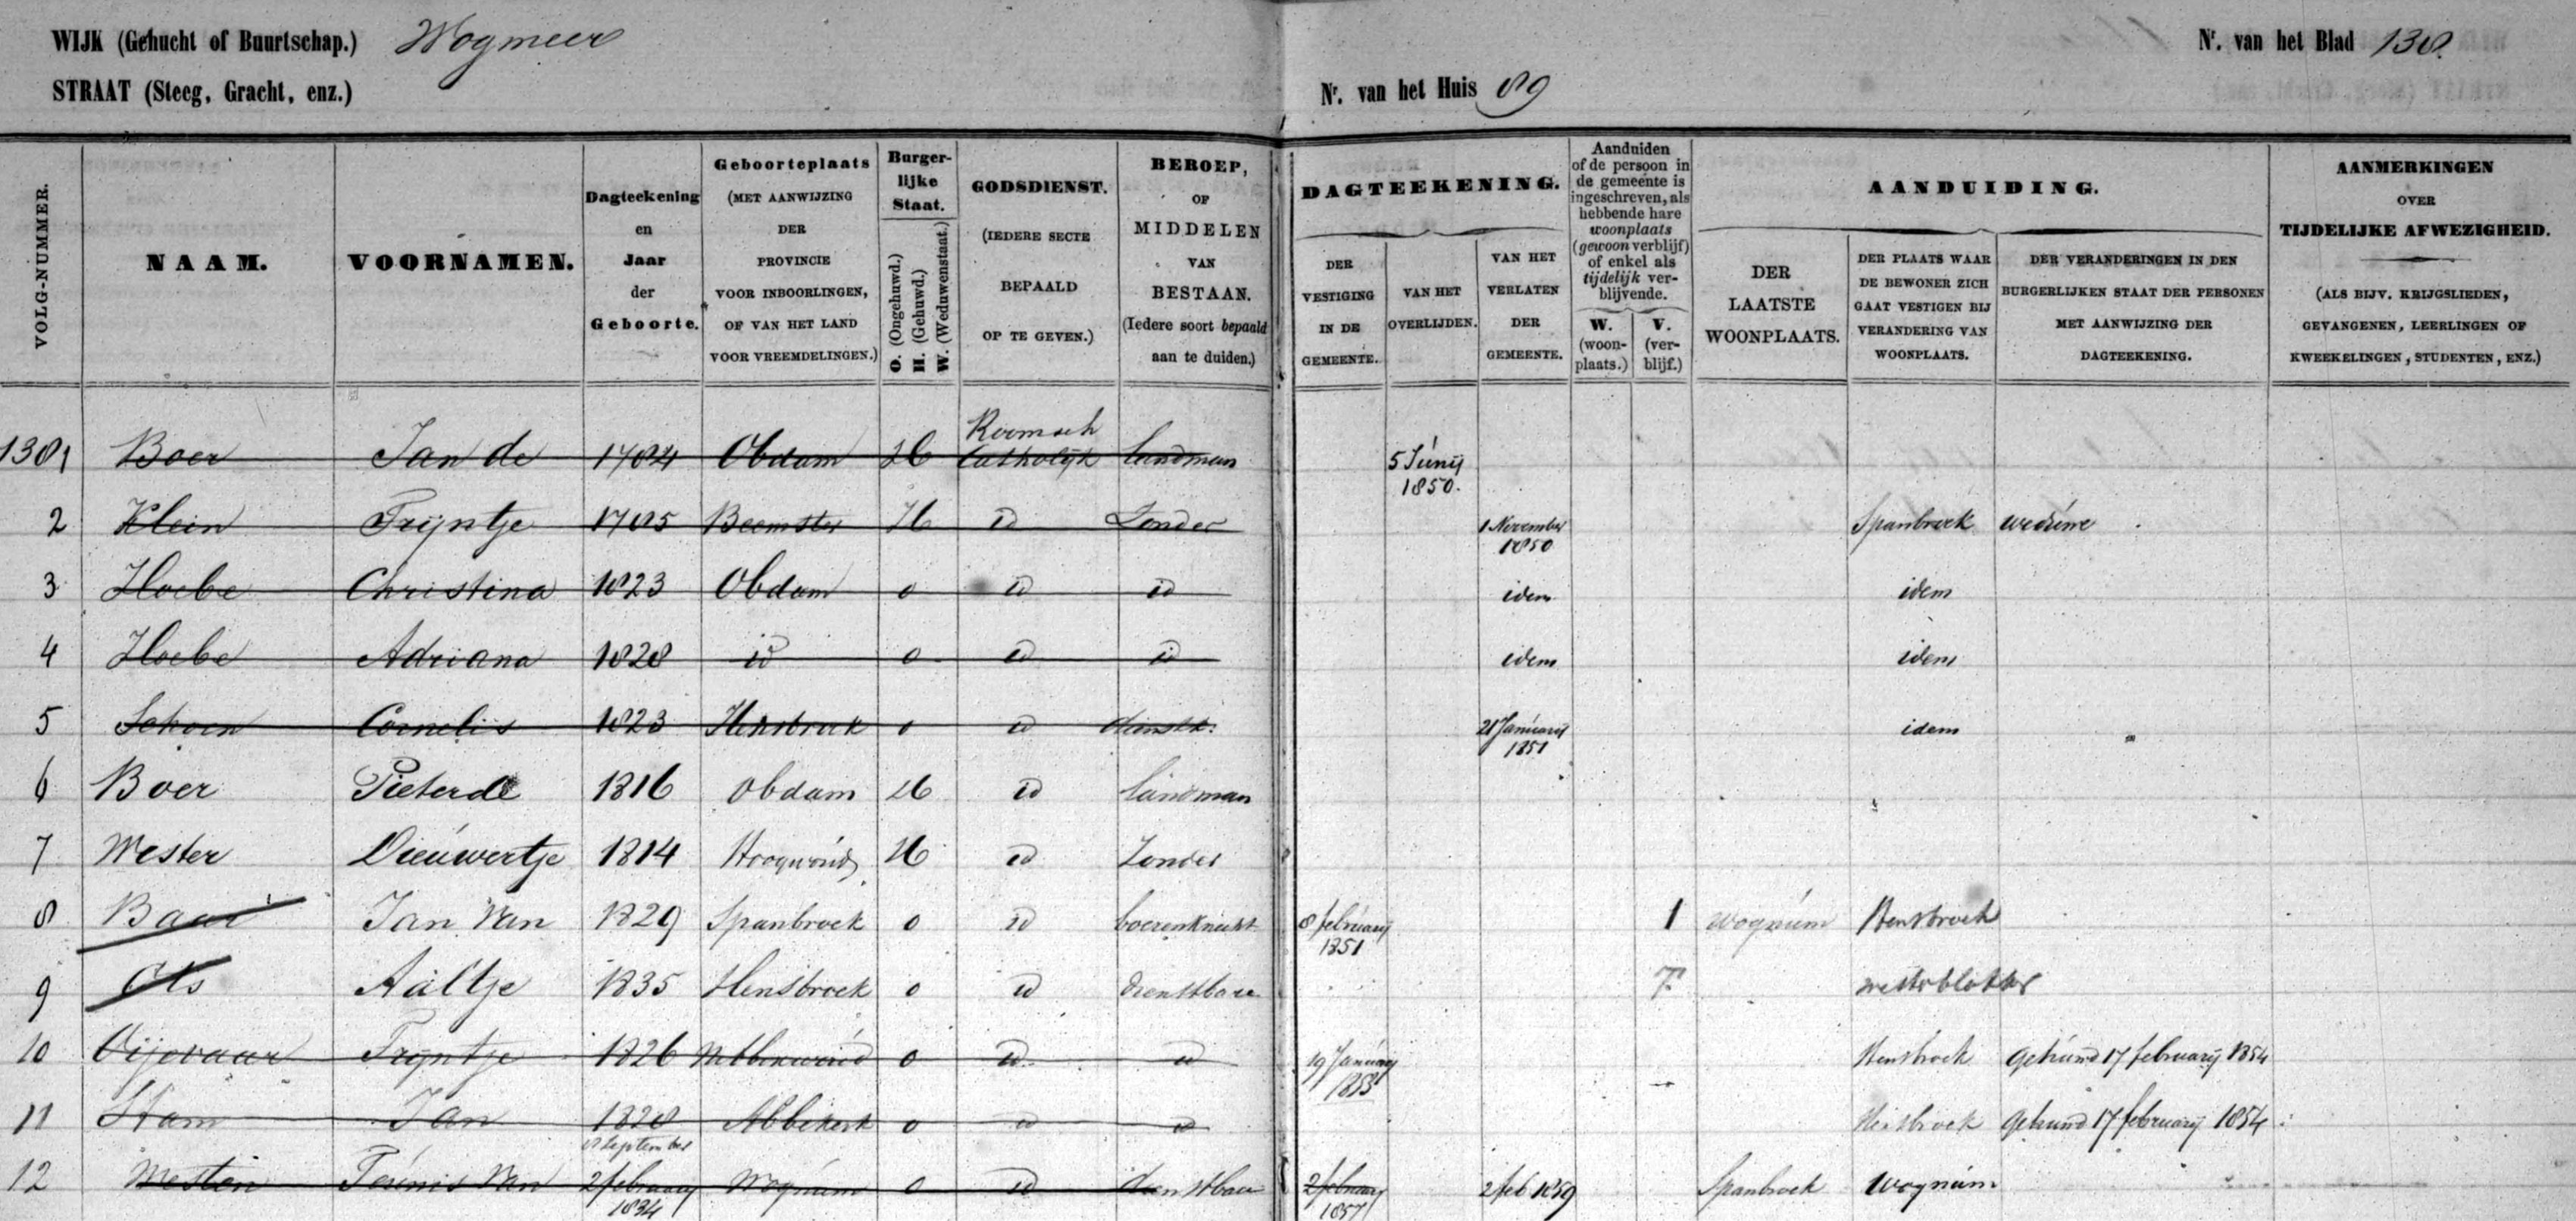 WIJK (Gehucht of Buurtschap.) Wogmeer
Nr. van het Blad 138.
STRAAT (Steeg, Gracht, enz.)
Nr. van het Huis 89
VOLG-NUMMER.
NAAM.
VOORNAMEN.
Dagteekening
en
Jaar
der
Geboorte.
Geboorteplaats
(MET AANWIJZING
DER
PROVINCIE
VOOR INBOORLINGEN,
OF VAN HET LAND
VOOR VREEMDELINGEN.)
Burger-
lijke
Staat.
O. (Ongehuwd.)
H. (Gehuwd.)
W. (Weduwenstaat.)
GODSDIENST.
(IEDERE SECTE
BEPAALD
OP TE GEVEN.)
BEROEP,
OF
MIDDELEN
VAN
BESTAAN.
(Iedere soort bepaald
aan te duiden.)
DAGTEEKENING.
DER
VESTIGING
IN DE
GEMEENTE.
VAN HET
OVERLIJDEN.
VAN HET
VERLATEN
DER
GEMEENTE.
Aanduiden
of de persoon in
de gemeente is
ingeschreven, als
hebbende hare
woonplaats
(gewoon verblijf)
of enkel als
tijdelijk ver-
blijvende.
W.
(woon-
plaats.)
V.
(ver-
blijf.)
AANDUIDING.
DER
LAATSTE
WOONPLAATS.
DER PLAATS WAAR
DE BEWONER ZICH
GAAT VESTIGEN BIJ
VERANDERING VAN
WOONPLAATS.
DER VERANDERINGEN IN DEN
BURGERLIJKEN STAAT DER PERSONEN
MET AANWIJZING DER
DAGTEEKENING.
AANMERKINGEN
OVER
TIJDELIJKE AFWEZIGHEID.
(ALS BIJV. KRIJGSLIEDEN,
GEVANGENEN, LEERLINGEN OF
KWEEKELINGEN, STUDENTEN, ENZ.)
1381 Boer Jan de 1784 Obdam H Roomsch Catholijk landman 5 Junij 1850.
2 Klein Trijntje 1785 Beemster H id Zonder 1 November 1850 Spanbroek weduwe
3 Hoebe Christina 1823 Obdam o id id idem idem
4 Hoebe Adriana 1828 id o id id idem idem
5 Schoen Cornelis 1823 Hensbroek o id dienstk. 21 Januarij 1851 idem
6 Boer Pieter de 1816 Obdam H id landman
7 Wester Dieuwertje 1814 Hoogwoud H id Zonder
8 Baar Jan Van 1829 Spanbroek o id boerenknecht 8 februarij 1851 1 Wognum Hensbroek
9 Ots Aaltje 1835 Hensbroek o id dienstbare westerblokker
10 Trijntje 1826 o id id 19 Januarij 1853 Hensbroek Gehuwd 17 februarij 1854
11 Stam Jan 1828 Abbekerk o id id Hensbroek Gehuwd 17 februarij 1854
12 Westen Teunis Van 8 September 2 februarij 1834 Wognum o id dienstbaar 2 februarij 1857 2 feb 1859 Spanbroek Wognum